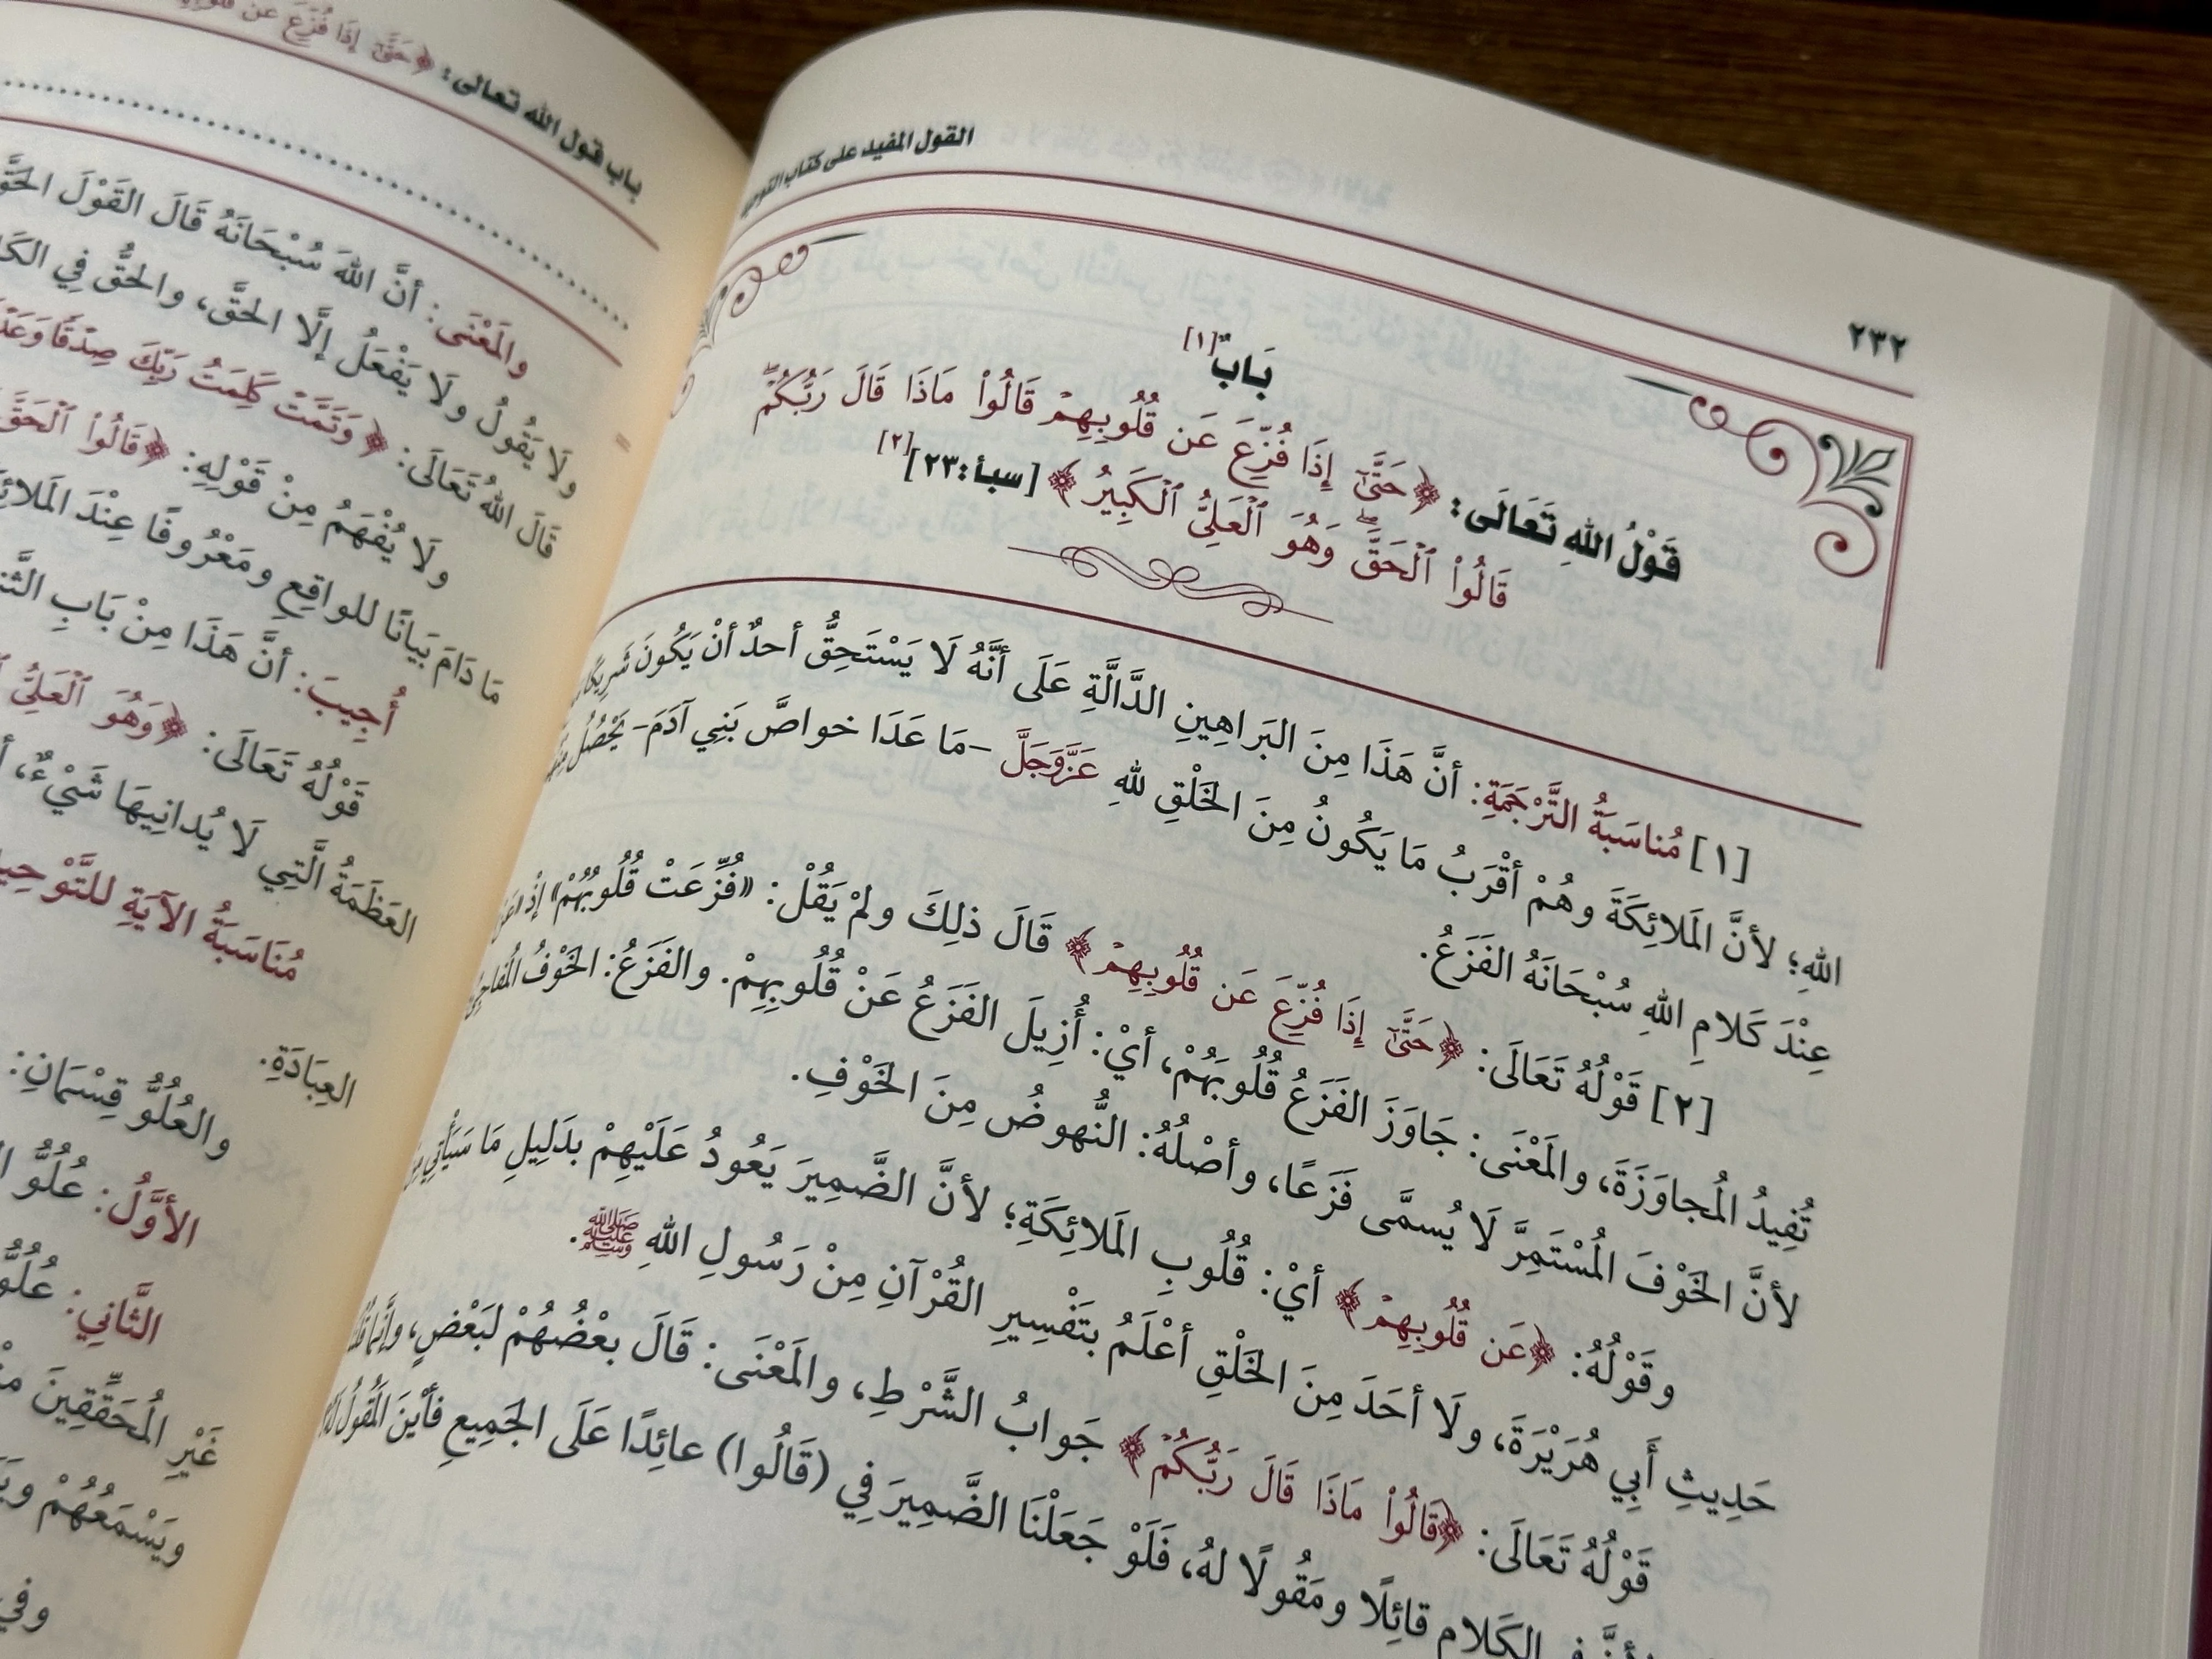 ٢٣٢
القول المفيد على كتاب التوحيد
بَابٌ[١]
قَوْلُ اللهِ تَعَالَى: ﴿حَتَّىٰٓ إِذَا فُزِّعَ عَن قُلُوبِهِمْ قَالُوا۟ مَاذَا قَالَ رَبُّكُمْ ۖ
قَالُوا۟ ٱلْحَقَّ ۖ وَهُوَ ٱلْعَلِىُّ ٱلْكَبِيرُ﴾ [سبأ:٢٣][٢]
[١] مُناسَبَةُ التَّرْجَمَةِ: أنَّ هَذَا مِنَ البَرَاهِينِ الدَّالَّةِ عَلَى أنَّهُ لَا يَسْتَحِقُّ أحدٌ أنْ يَكُونَ شَرِيكًا
اللهِ؛ لأنَّ المَلائِكَةَ وهُمْ أقْرَبُ مَا يَكُونُ مِنَ الخَلْقِ للهِ عَزَّوَجَلَّ -مَا عَدَا خواصَّ بَنِي آدَمَ- يَحْصُلُ مِنْهُمْ
عِنْدَ كَلامِ اللهِ سُبْحَانَهُ الفَزَعُ.
[٢] قَوْلُهُ تَعَالَى: ﴿حَتَّىٰٓ إِذَا فُزِّعَ عَن قُلُوبِهِمْ﴾ قَالَ ذلِكَ ولمْ يَقُلْ: «فُزِّعَتْ قُلُوبُهُمْ» إذْ «عَنْ»
تُفِيدُ المُجاوَزَةَ، والمَعْنَى: جَاوَزَ الفَزَعُ قُلُوبَهُمْ، أيْ: أُزِيلَ الفَزَعُ عَنْ قُلُوبِهِمْ. والفَزَعُ: الخَوْفُ المُفاجِئُ
لأنَّ الخَوْفَ المُسْتَمِرَّ لَا يُسمَّى فَزَعًا، وأصْلُهُ: النُّهوضُ مِنَ الخَوْفِ.
وقَوْلُهُ: ﴿عَن قُلُوبِهِمْ﴾ أيْ: قُلُوبِ المَلائِكَةِ؛ لأنَّ الضَّمِيرَ يَعُودُ عَلَيْهِمْ بدَلِيلِ مَا سَيَأْتِي مِنْ
حَدِيثِ أَبِي هُرَيْرَةَ، ولَا أحَدَ مِنَ الخَلْقِ أعْلَمُ بتَفْسِيرِ القُرْآنِ مِنْ رَسُولِ اللهِ ﷺ.
قَوْلُهُ تَعَالَى: ﴿قَالُوا۟ مَاذَا قَالَ رَبُّكُمْ﴾ جَوابُ الشَّرْطِ، والمَعْنَى: قَالَ بعْضُهُمْ لبَعْضٍ، وإنَّما قُلْنَا
لأنَّ فِي الكَلامِ قائِلًا ومَقُولًا لهُ، فَلَوْ جَعَلْنَا الضَّمِيرَ فِي (قَالُوا) عائِدًا عَلَى الجَمِيعِ فأيْنَ المَقُولُ لَهُمْ
باب قول الله تعالى: ﴿حَتَّىٰٓ إِذَا فُزِّعَ عَن
والمَعْنَى: أنَّ اللهَ سُبْحَانَهُ قَالَ القَوْلَ الحَقَّ
ولَا يَقُولُ ولَا يَفْعَلُ إلَّا الحَقَّ، والحَقُّ فِي
قَالَ اللهُ تَعَالَى: ﴿وَتَمَّتْ كَلِمَتُ رَبِّكَ صِدْقًا
ولَا يُفْهَمُ مِنْ قَوْلِهِ: ﴿قَالُوا۟ ٱلْحَقَّ
مَا دَامَ بَيَانًا للواقِعِ ومَعْرُوفًا عِنْدَ
أُجِيبَ: أنَّ هَذَا مِنْ بَابِ
قَوْلُهُ تَعَالَى: ﴿وَهُوَ ٱلْعَلِىُّ
العَظَمَةُ الَّتِي لَا يُدانِيهَا شَيْءٌ،
مُنَاسَبَةُ الآيَةِ للتَّوْحِيدِ
العِبَادَةِ.
والعُلُوُّ قِسْمَانِ:
الأوَّلُ: عُلُوُّ
الثَّانِي: عُلُوُّ
غَيْرِ المُحَقِّقِينَ
ويَسْمَعُهُمْ
وفي